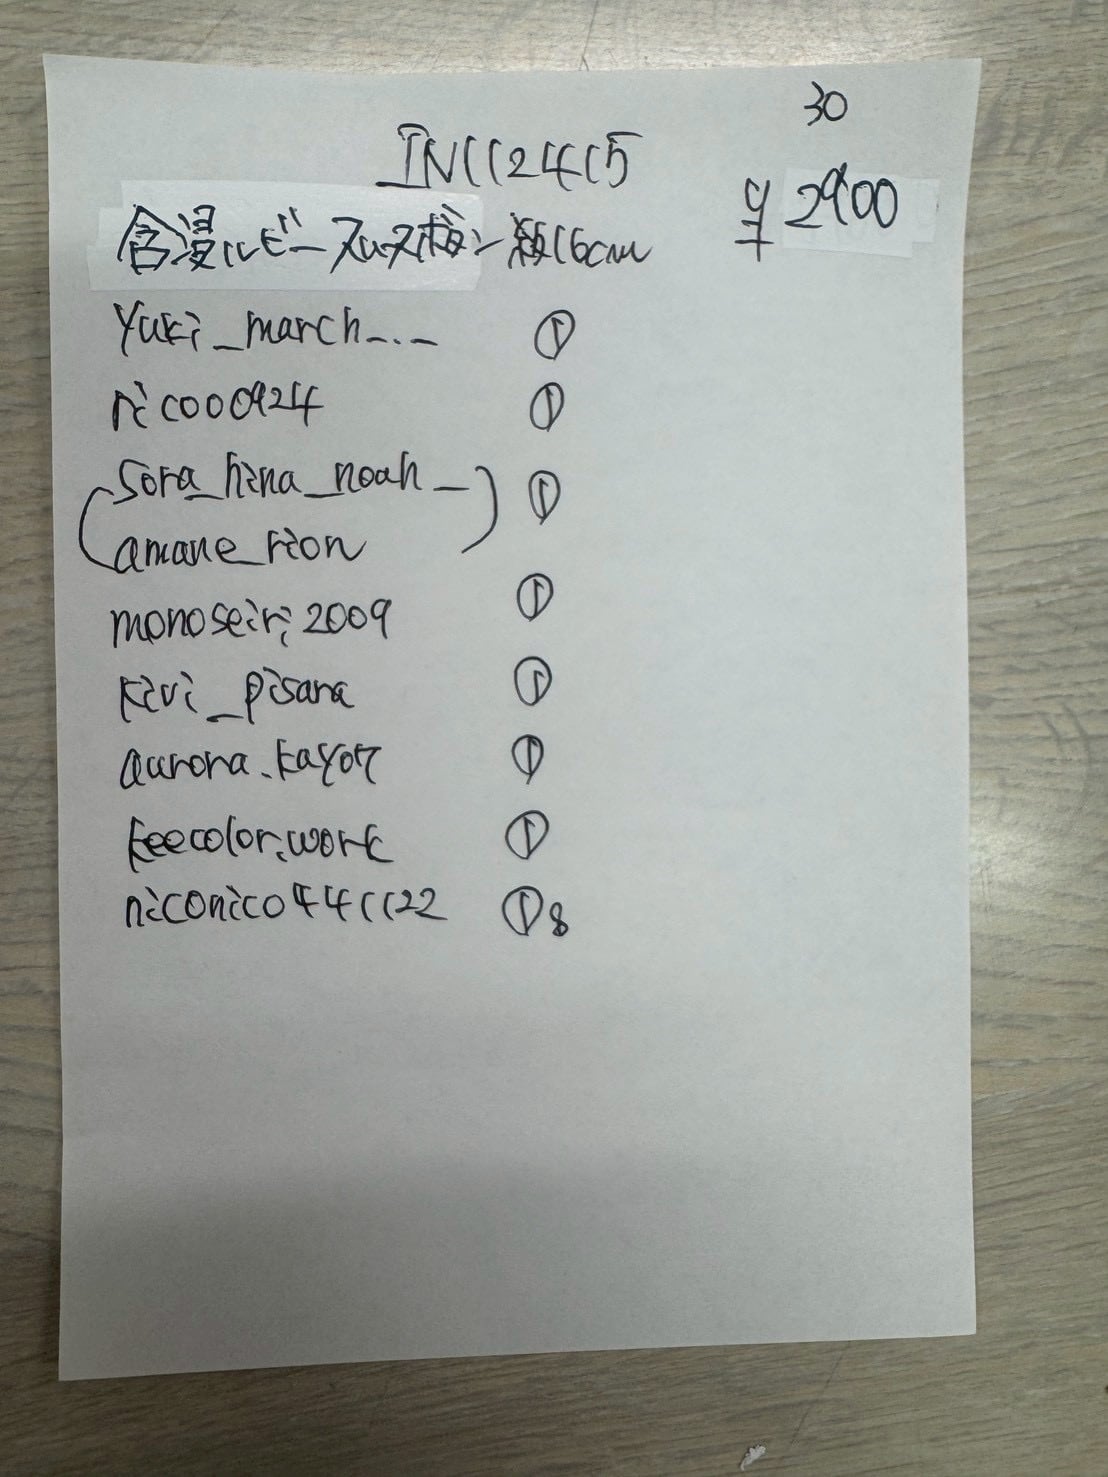 30
IN1124115
¥2900
含浸ルビー 約16cm
Yuki_march_._
rico00924
(sora_hina_noah_
amane_rion)
①
monoseiri2009 ①
kivi_pisara ①
aurora.kayo7 ①
keecolor.work ①
niconico441122 ①8